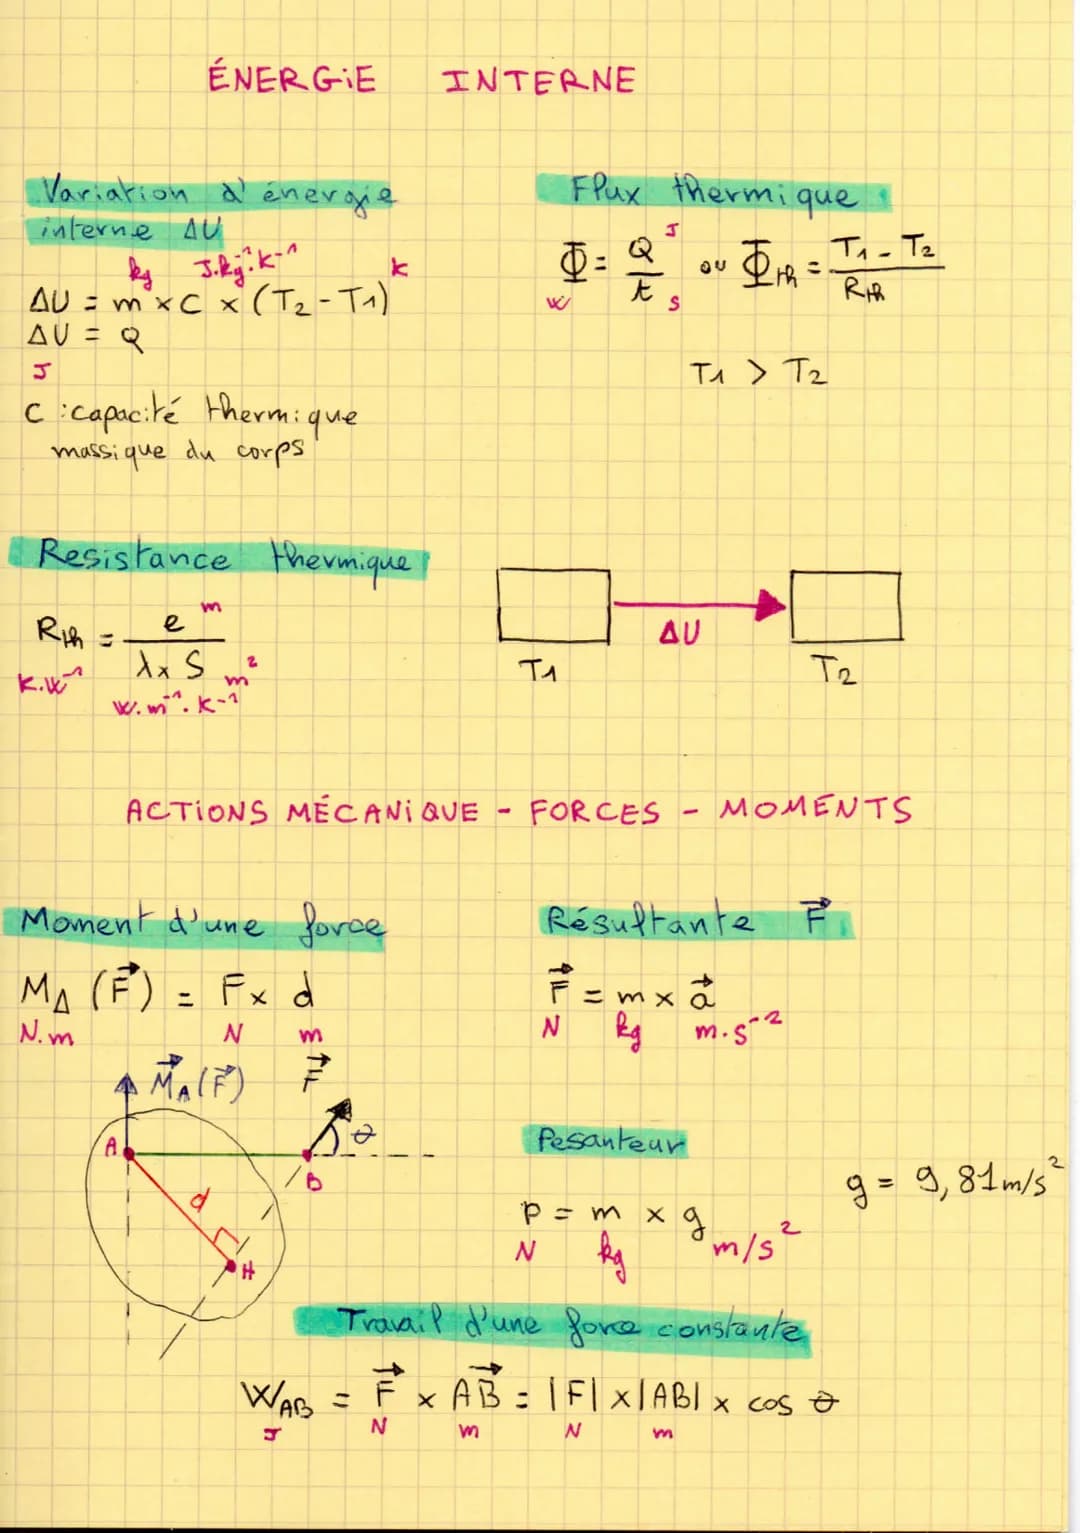 ÉNERGIE INTERNE
Variation d'énergie
interne ΔU
kg J.kg⁻¹.K⁻¹ K
ΔU = m × C × (T₂ - T₁)
ΔU = Q
J
C : capacité thermique
massique du corps
Flux thermique
J
Φ = Q/t ou Φth = (T₁ - T₂)/Rth
W S
T₁ > T₂
Resistance thermique
m
Rth = e/(λ × S)
K.W⁻¹ m²
W.m⁻¹.K⁻¹
ΔU
T₁ T₂
ACTIONS MÉCANIQUE - FORCES - MOMENTS
Moment d'une force
M_Δ (F⃗) = F × d
N.m N m
M⃗_A(F⃗) F⃗
θ
A
B
d
H
Résultante F⃗
F⃗ = m × a⃗
N kg m.s⁻²
Pesanteur
g = 9,81 m/s²
P = m × g
N kg m/s²
Travail d'une force constante
W_AB = F⃗ × AB⃗ = |F| × |AB| × cos θ
J N m N m